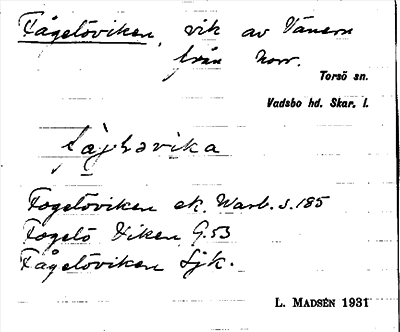 Fågelöviken, vik av Vänern
från norr.
Torsö sn.
Vadsbo hd. Skar. l.
Fogelöviken ek. Warb. s. 185
Fogelö Viken G. 53
Fågelöviken Sjk.
L. MADSÉN 1931